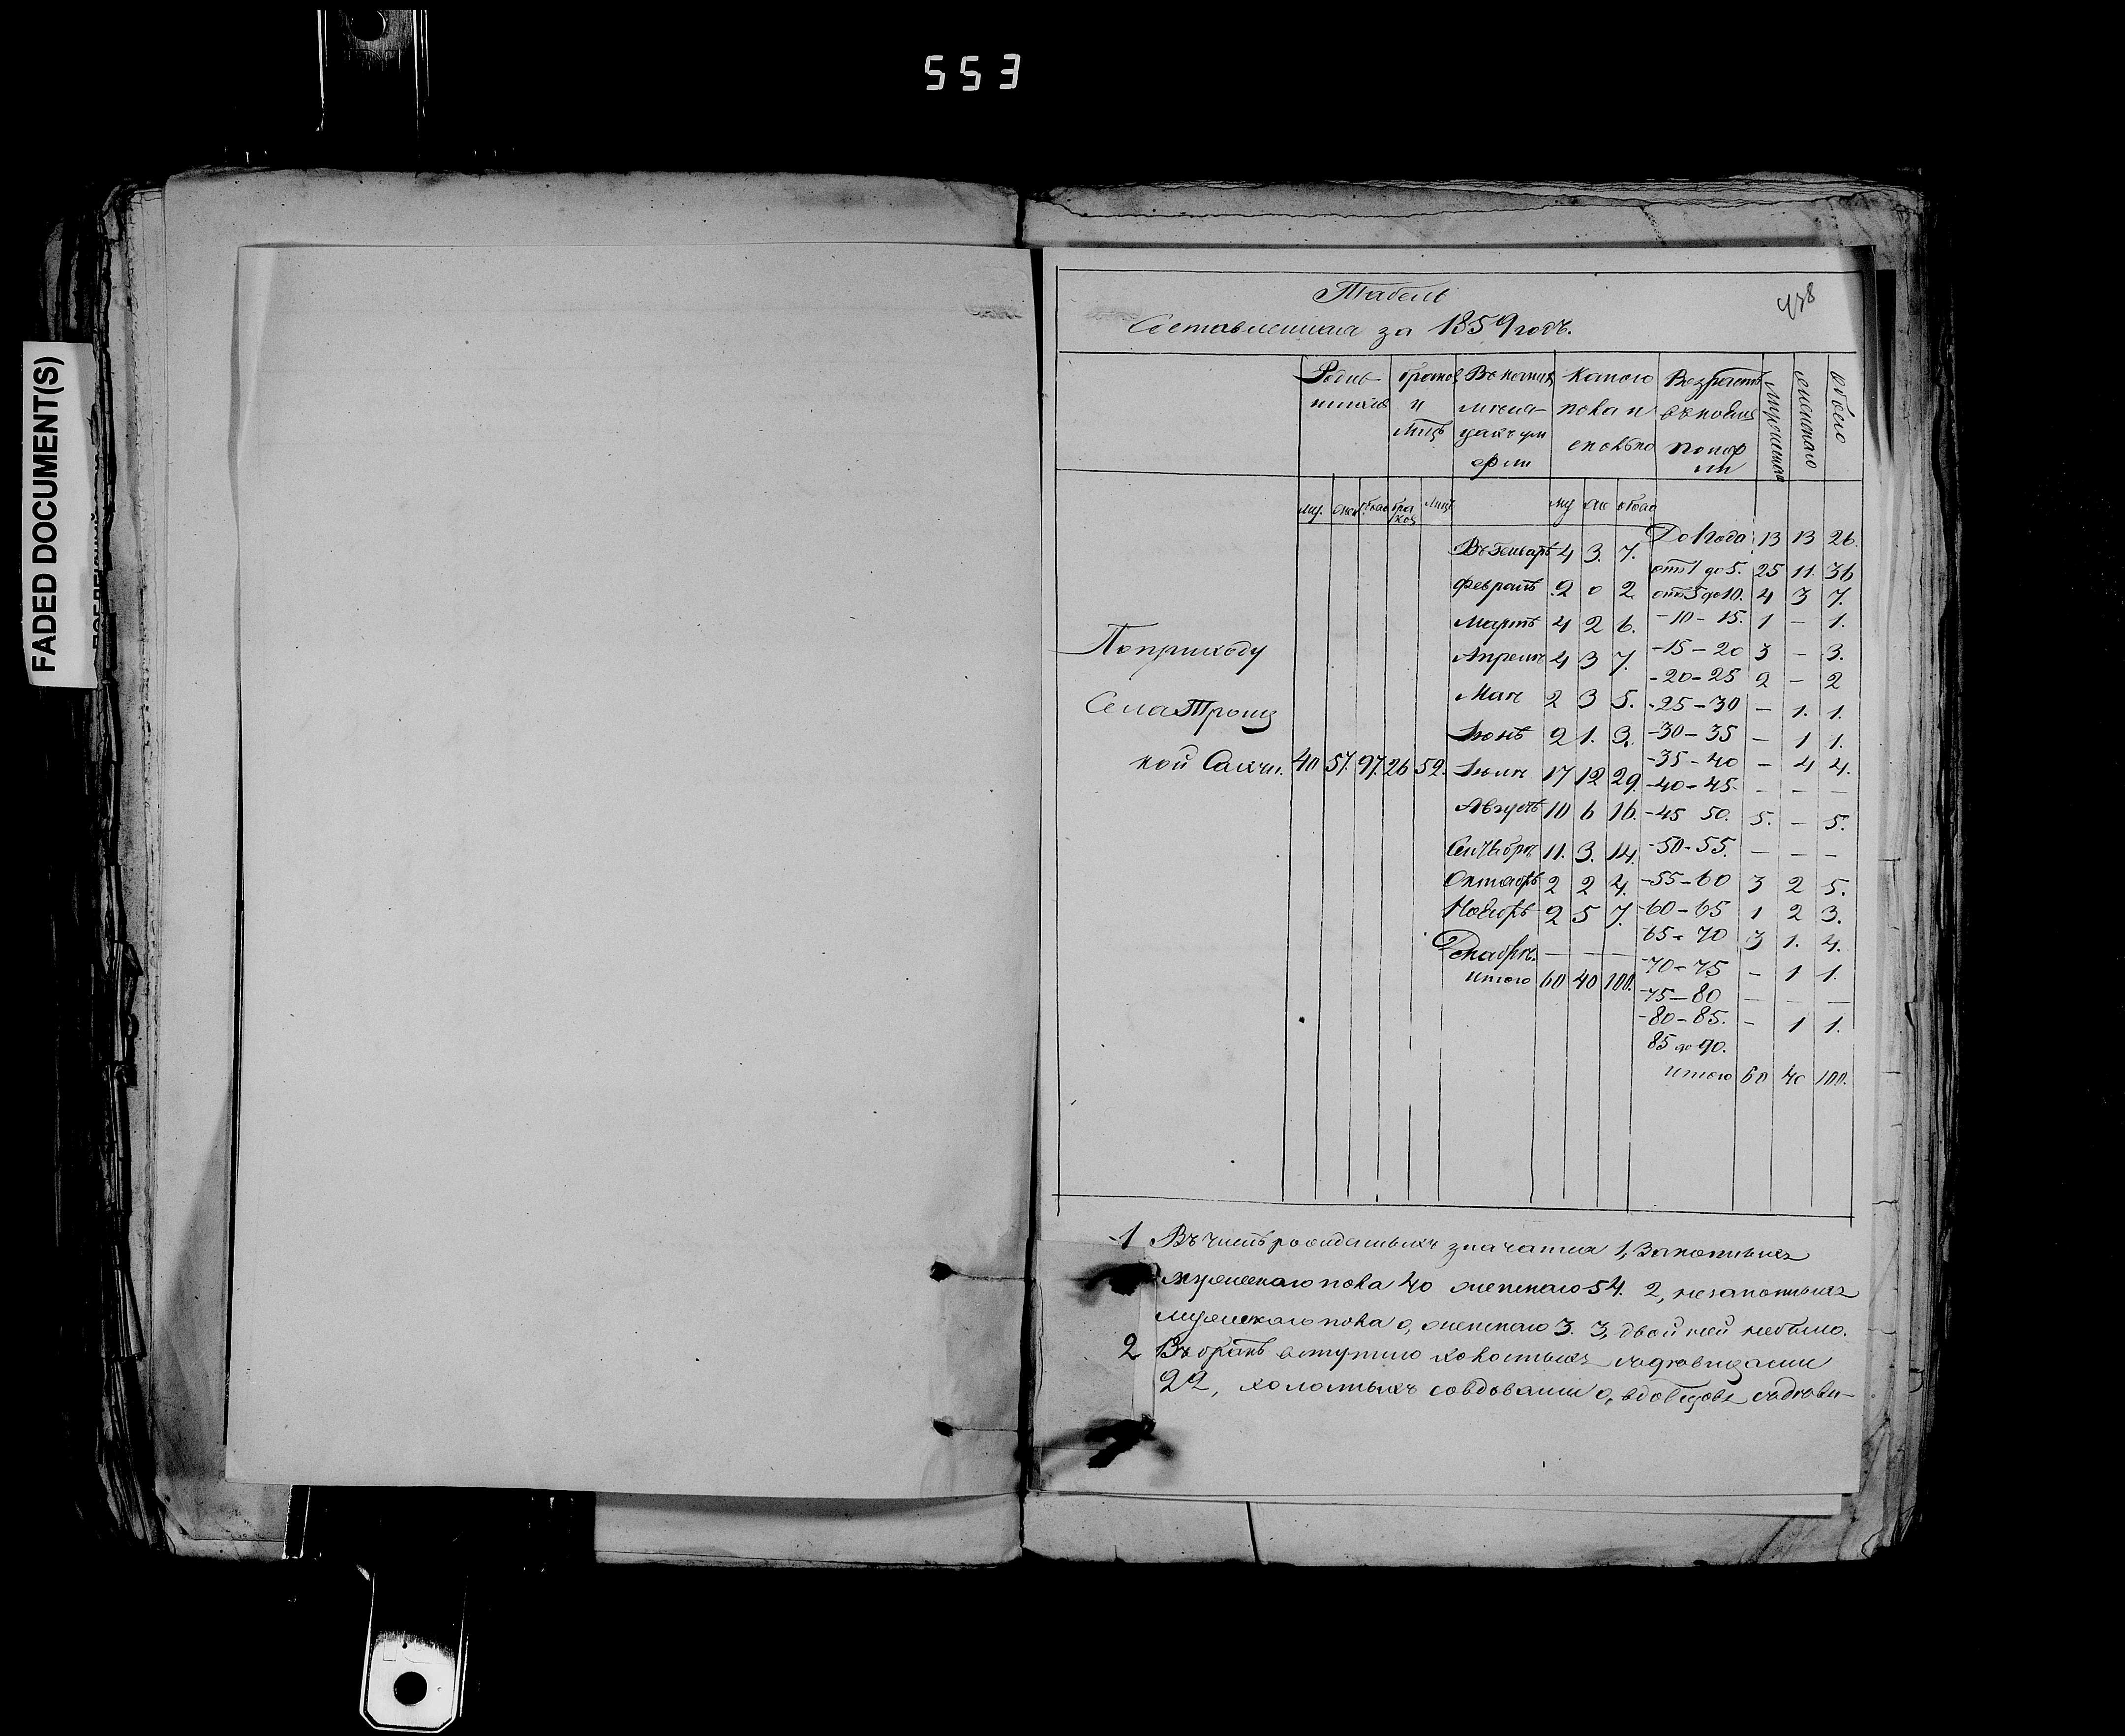 553
FADED DOCUMENT(S)
Табель
Составленная за 1859 годъ.
Роди- браковъ Въ какихъ Какого Возрастъ мужескаго женскаго обоего
лось и меся- пола и
лицъ цахъ ум сколько помер
ерли ли
му. жен обоего бра ковъ лицъ му же обоего
Въ Генваре 4 3. 7. До 1 года 13 13 26.
Феврале 2 0 2 отъ 1 до 5. 25 11. 36
Марте 4 2 6. отъ 5 до 10. 4 3 7.
Апреле 4 3 7. -10-15. 1 - 1.
Мае 2 3 5. -15-20 3 - 3.
Июне 2 1. 3. -20-25 2 - 2
Июле 17 12 29. -25-30 - 1. 1.
Августе 10 6 16. -30-35 - 1 1.
Сентябре 11. 3. 14. -35-40 - 4 4.
Октябре 2 2 4. -40-45 - - -
Ноябре 2 5 7. -45 50. 5. - 5.
Декабре. - - - -50-55. - - -
итого 60 40 100. -55-60 3 2 5.
-60-65 1 2 3.
65-70 3 1. 4.
-70-75 - 1 1.
-75-80 - - -
-80-85. - 1 1.
85 до 90.
итого 60 40 100.
По приходу
Села Троиц
кой 40 57. 97. 26 52.
1 Въ числѣ рожденныхъ значатся 1, Законныхъ
мужескаго пола 40 женскаго 54. 2, незаконныхъ
мужескаго пола 0, женскаго 3. 3, двойней небыло.
2 Въ бракъ вступило холостыхъ съ девицами
22, холостыхъ со вдовами 0, вдовцовъ съ деви-